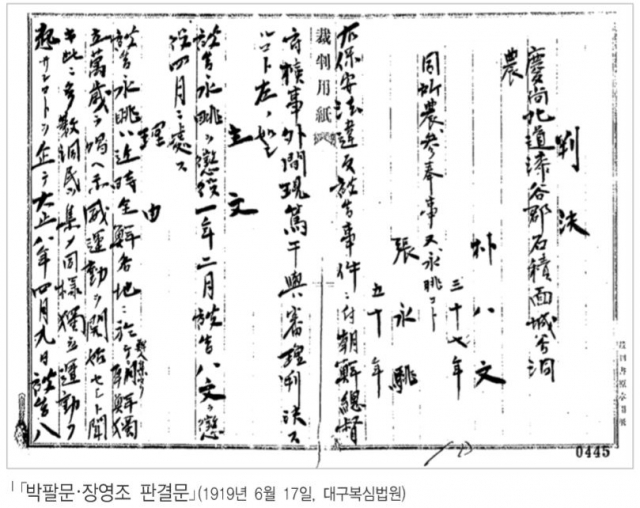 判決
慶尚北道漆谷郡石積面城谷洞
農
朴八文
三十七年
同所農参奉事又永眺コト
張永眺
五十年
右保安法違反被告事件ニ付朝鮮總督
府検事外間現篤干與審理判決スル
コト左ノ如シ
主文
被告永眺ヲ懲役一年二月被告八文ヲ懲
役四月ニ處ス
理由
被告永眺ハ近時全鮮各地ニ於テ朝鮮獨
立萬歳ヲ唱ヘ示威運動ヲ開始セシト聞
キ此ニ多數洞民ヲ集メ同様獨立運動ヲ
起サンコトヲ企テ大正八年四月九日被告八
裁判用紙
0445
「박팔문·장영조 판결문」(1919년 6월 17일, 대구복심법원)